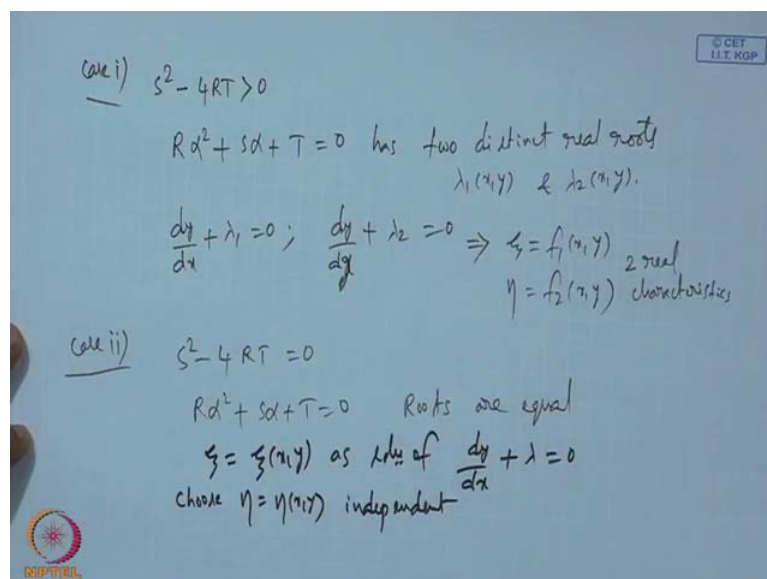 © CET
I.I.T. KGP
Case i) S² - 4RT > 0
Rα² + Sα + T = 0 has two distinct real roots
λ₁(x,y) & λ₂(x,y).
dy/dx + λ₁ = 0 ; dy/dy + λ₂ = 0 ⇒ ξ = f₁(x,y)
η = f₂(x,y) 2 real characteristics
Case ii) S² - 4RT = 0
Rα² + Sα + T = 0 Roots are equal
ξ = ξ(x,y) as soln of dy/dx + λ = 0
Choose η = η(x,y) independent
NPTEL